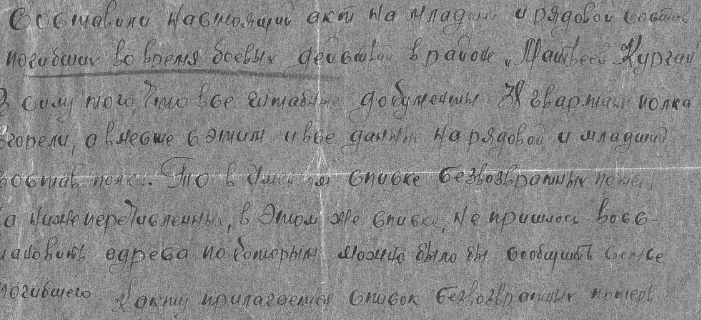 Составили настоящий акт на младший и рядовой состав
погибших во время боевых действий в районе "Матвеев Курган"
В силу того, что все штабные документы гвардии полка
сгорели, а вместе с этим и все данные на рядовой и младший
состав полка. Это в списке безвозвратных потерь
на нижеперечисленных, в этом же списке, не пришлось восс-
тановить адреса по которым можно было бы сообщить семье
погибшего К акту прилагается список безвозвратных потерь